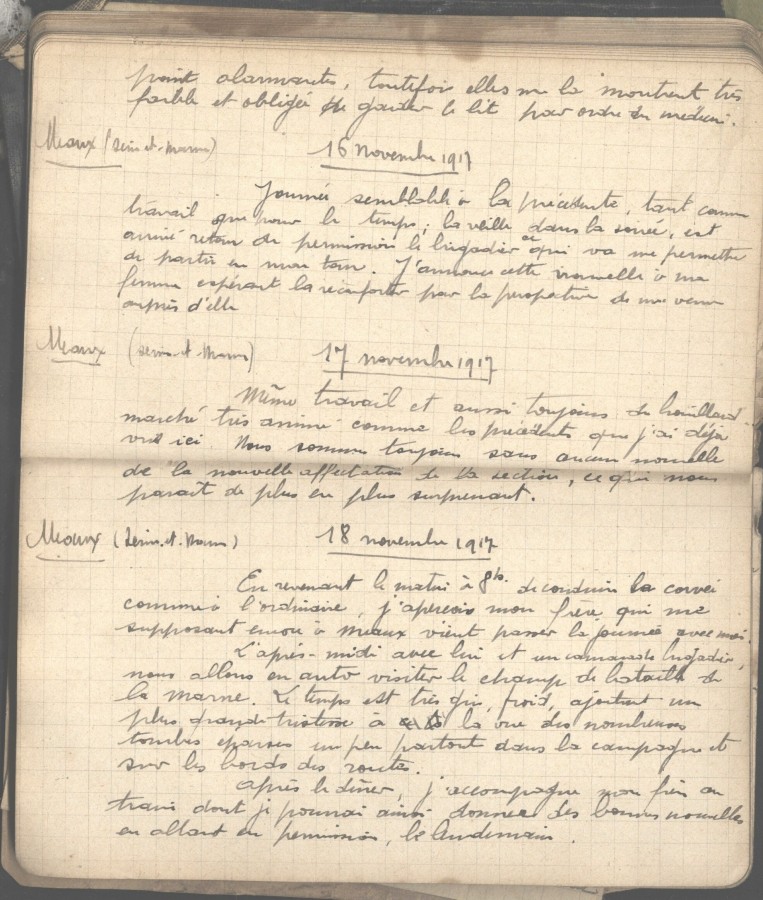 point alarmantes, toutefois elles me la montrent très
faible et obligée de garder le lit par ordre du médecin.
Meaux (Seine-et-Marne) 16 novembre 1917
Journée semblable à la précédente, tant comme
travail que pour le temps; la veille dans la soirée, est
arrivé retour de permission le brigadier ce qui va me permettre
de partir en mon tour. J'annonce cette nouvelle à ma
femme espérant la réconforter par la perspective de me venue
auprès d'elle
Meaux (Seine-et-Marne) 17 novembre 1917
Même travail et aussi toujours du brouillard
marché très animé comme les précédents que j'ai déjà
vus ici. Nous sommes toujours sans aucune nouvelle
de la nouvelle affectation de la section, ce qui nous
parait de plus en plus surprenant.
Meaux (Seine-et-Marne) 18 novembre 1917
En revenant le matin à 8h. de conduire la corvée
comme à l'ordinaire, j'aperçois mon frère qui me
supposant encore à Meaux vient passer la journée avec moi.
L'après-midi avec lui et un camarade brigadier,
nous allons en auto visiter le champ de bataille de
la Marne. Le temps est très gris, froid, ajoutant une
plus grande tristesse à la vue des nombreuses
tombes éparses un peu partout dans la campagne et
sur les bords des routes.
Après le dîner, j'accompagne mon frère au
train dont je pourrai ainsi donner des bonnes nouvelles
en allant en permission, le lendemain.